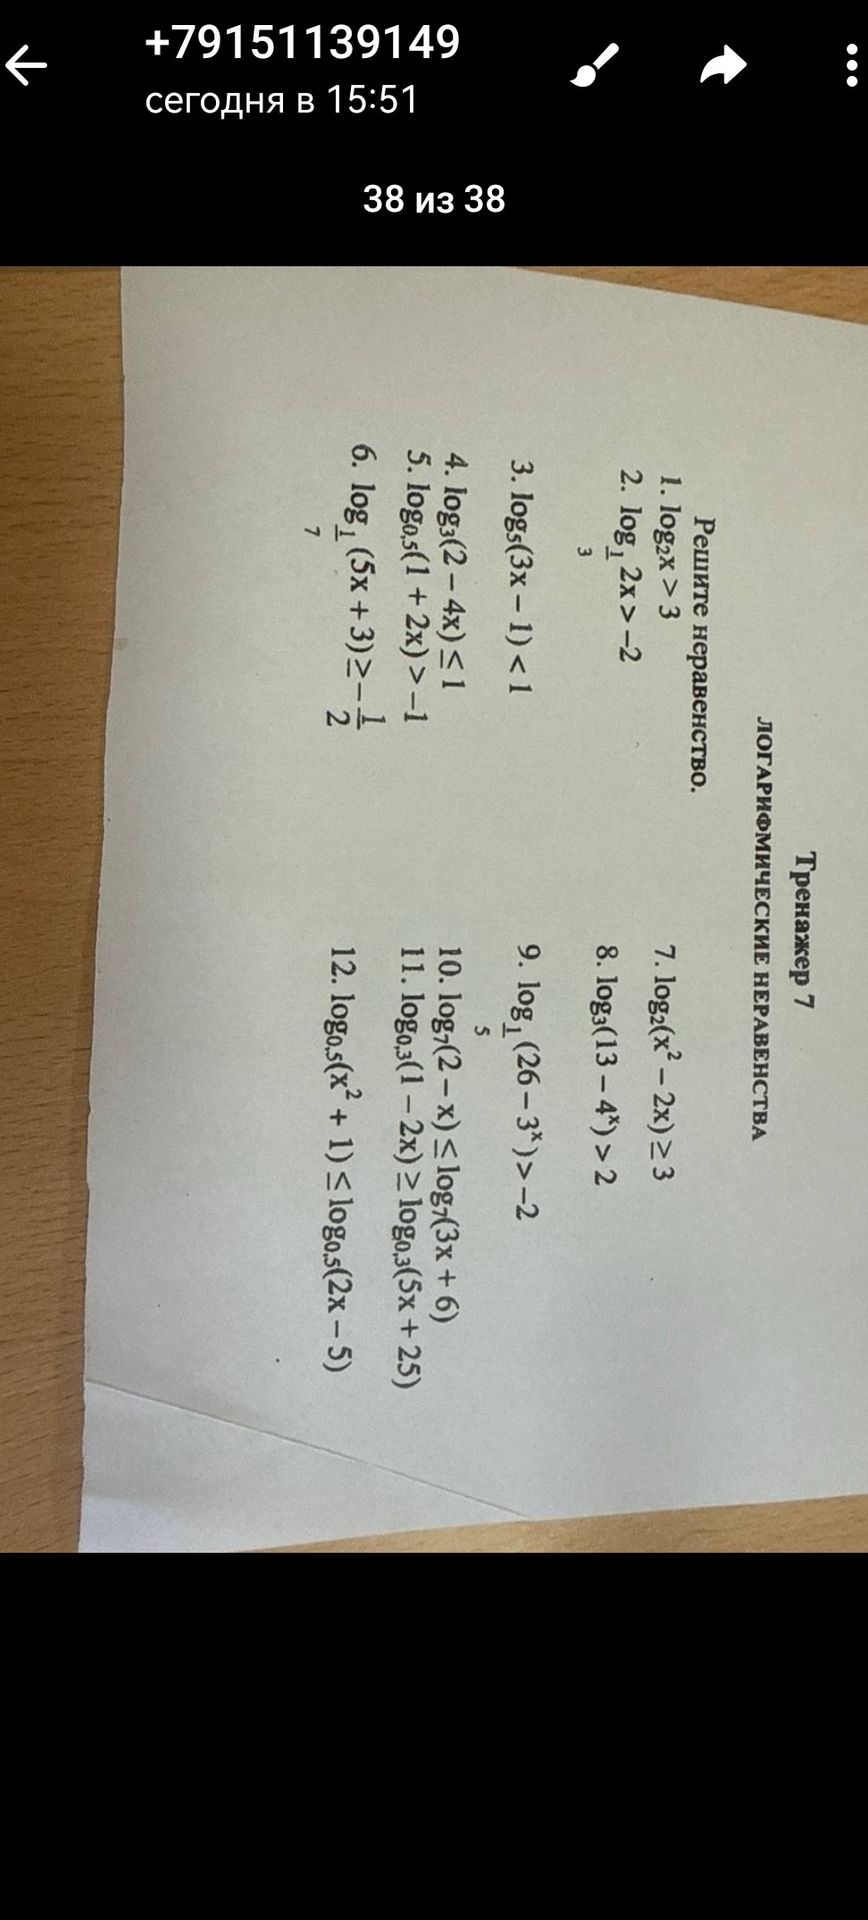 +79151139149
сегодня в 15:51
38 из 38
Тренажер 7
ЛОГАРИФМИЧЕСКИЕ НЕРАВЕНСТВА
Решите неравенство.
1. log₂x > 3
2. log_{1/3} 2x > –2
3. log₅(3x – 1) < 1
4. log₃(2 – 4x) ≤ 1
5. log₀,₅(1 + 2x) > –1
6. log_{1/7} (5x + 3) ≥ –1/2
7. log₂(x² – 2x) ≥ 3
8. log₃(13 – 4ˣ) > 2
9. log_{1/5} (26 – 3ˣ) > –2
10. log₇(2 – x) ≤ log₇(3x + 6)
11. log₀,₃(1 – 2x) ≥ log₀,₃(5x + 25)
12. log₀,₅(x² + 1) ≤ log₀,₅(2x – 5)